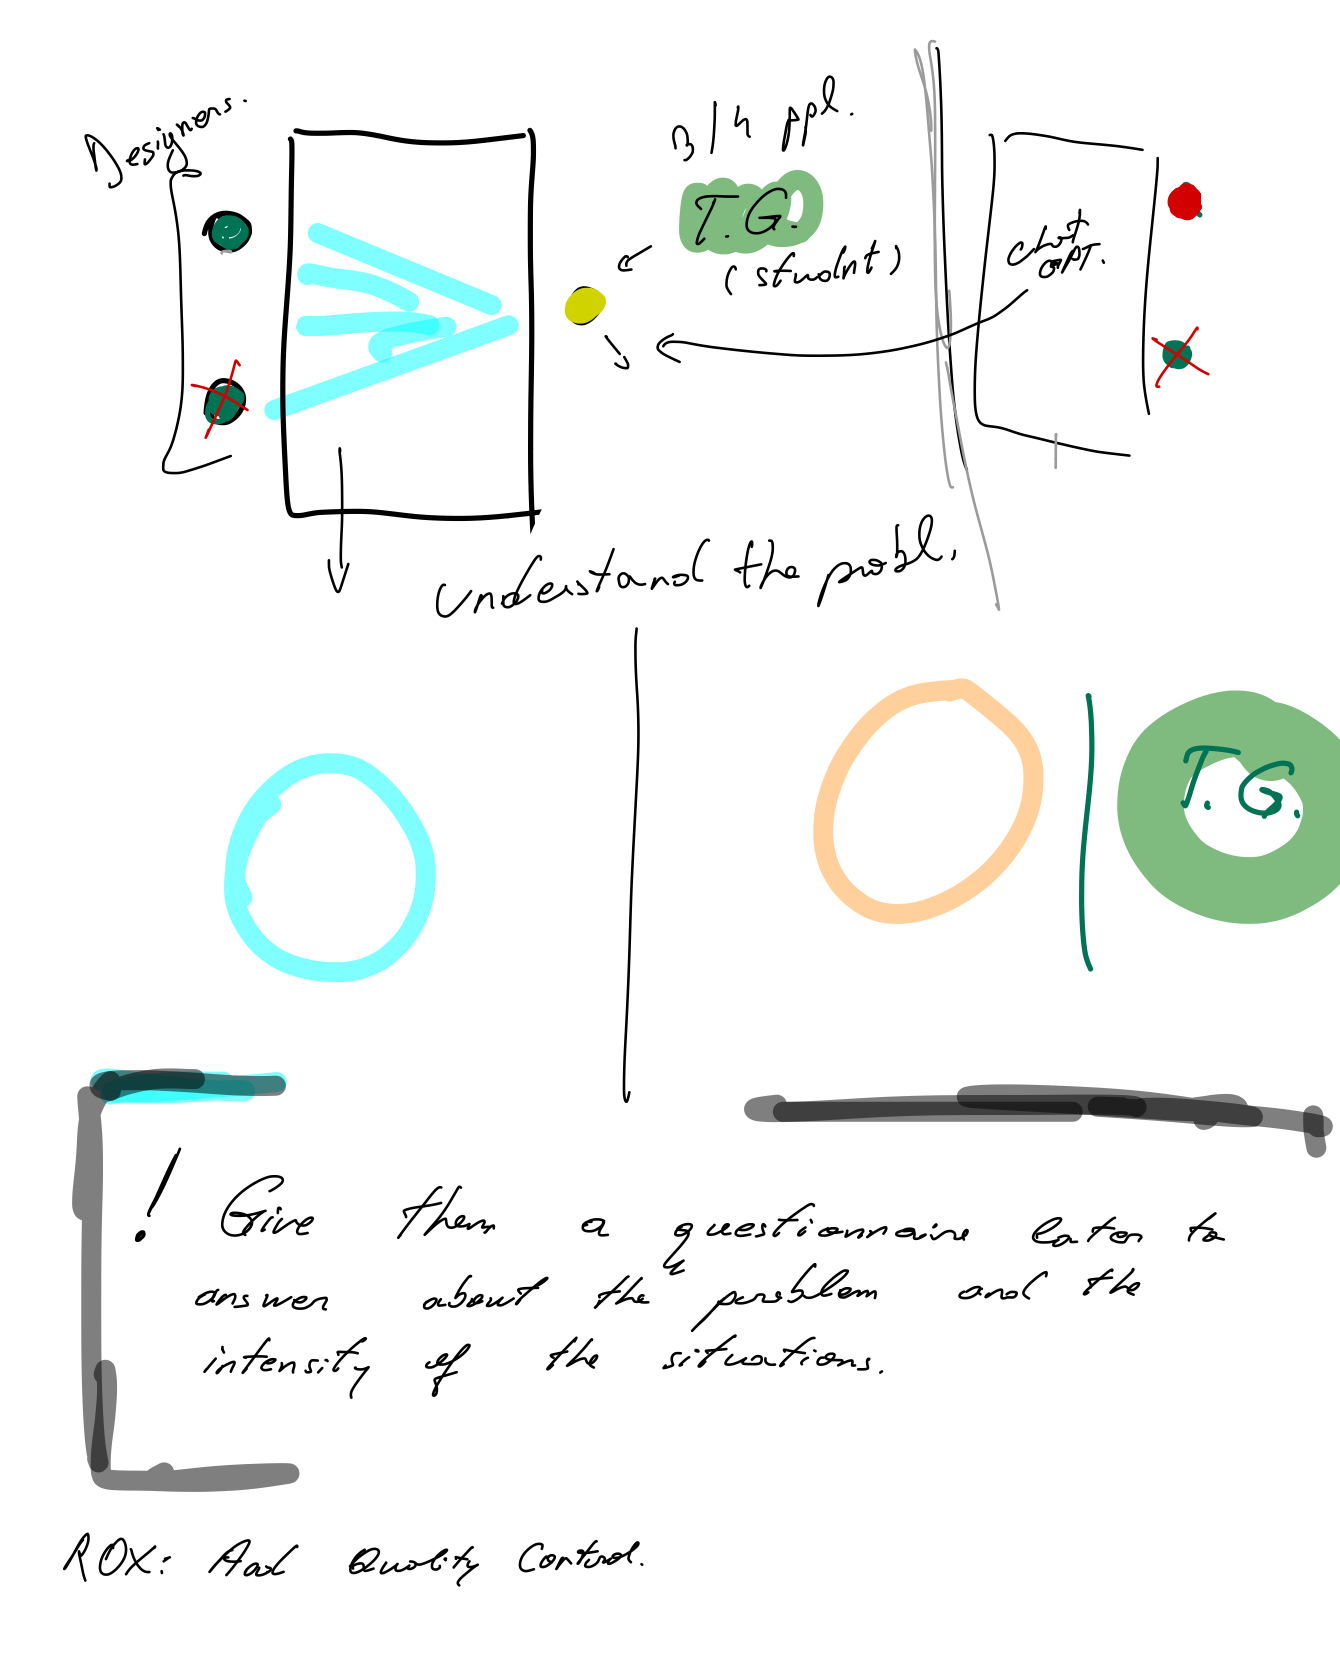 Designers.
3/4 ppl.
T.G.
(studnt)
chat
GPT.
Understand the probl.
T.G.
! Give them a questionnaire later to
answer about the problem and the
intensity of the situations.
ROX: Add Quality Control.